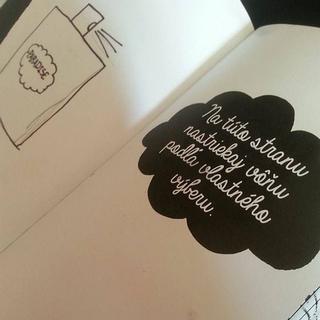 PARADISE
Na túto stranu
nastriekaj vôňu
podľa vlastného
výberu.